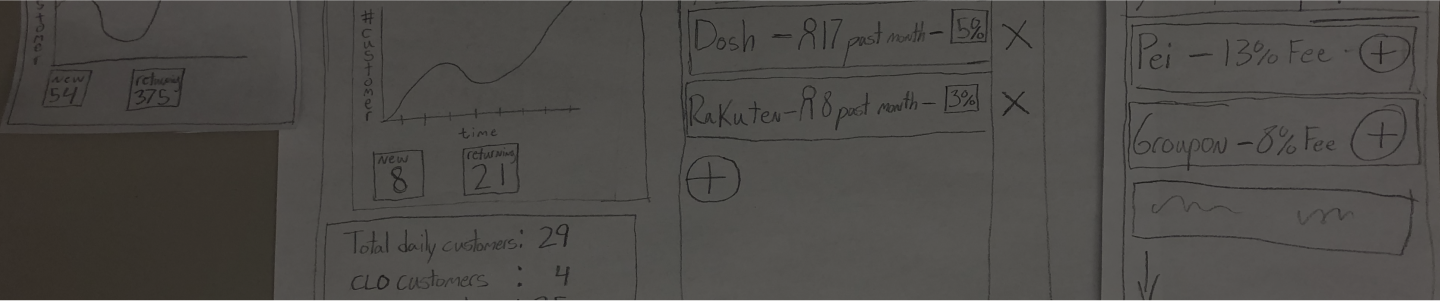 stomer
new
54
returning
375
#customer
time
new
8
returning
21
Total daily customers: 29
CLO customers : 4
Dosh - 17 past month - 5% X
Rakuten - 8 past month - 3% X
+
Pei - 13% Fee +
Groupon - 8% Fee +